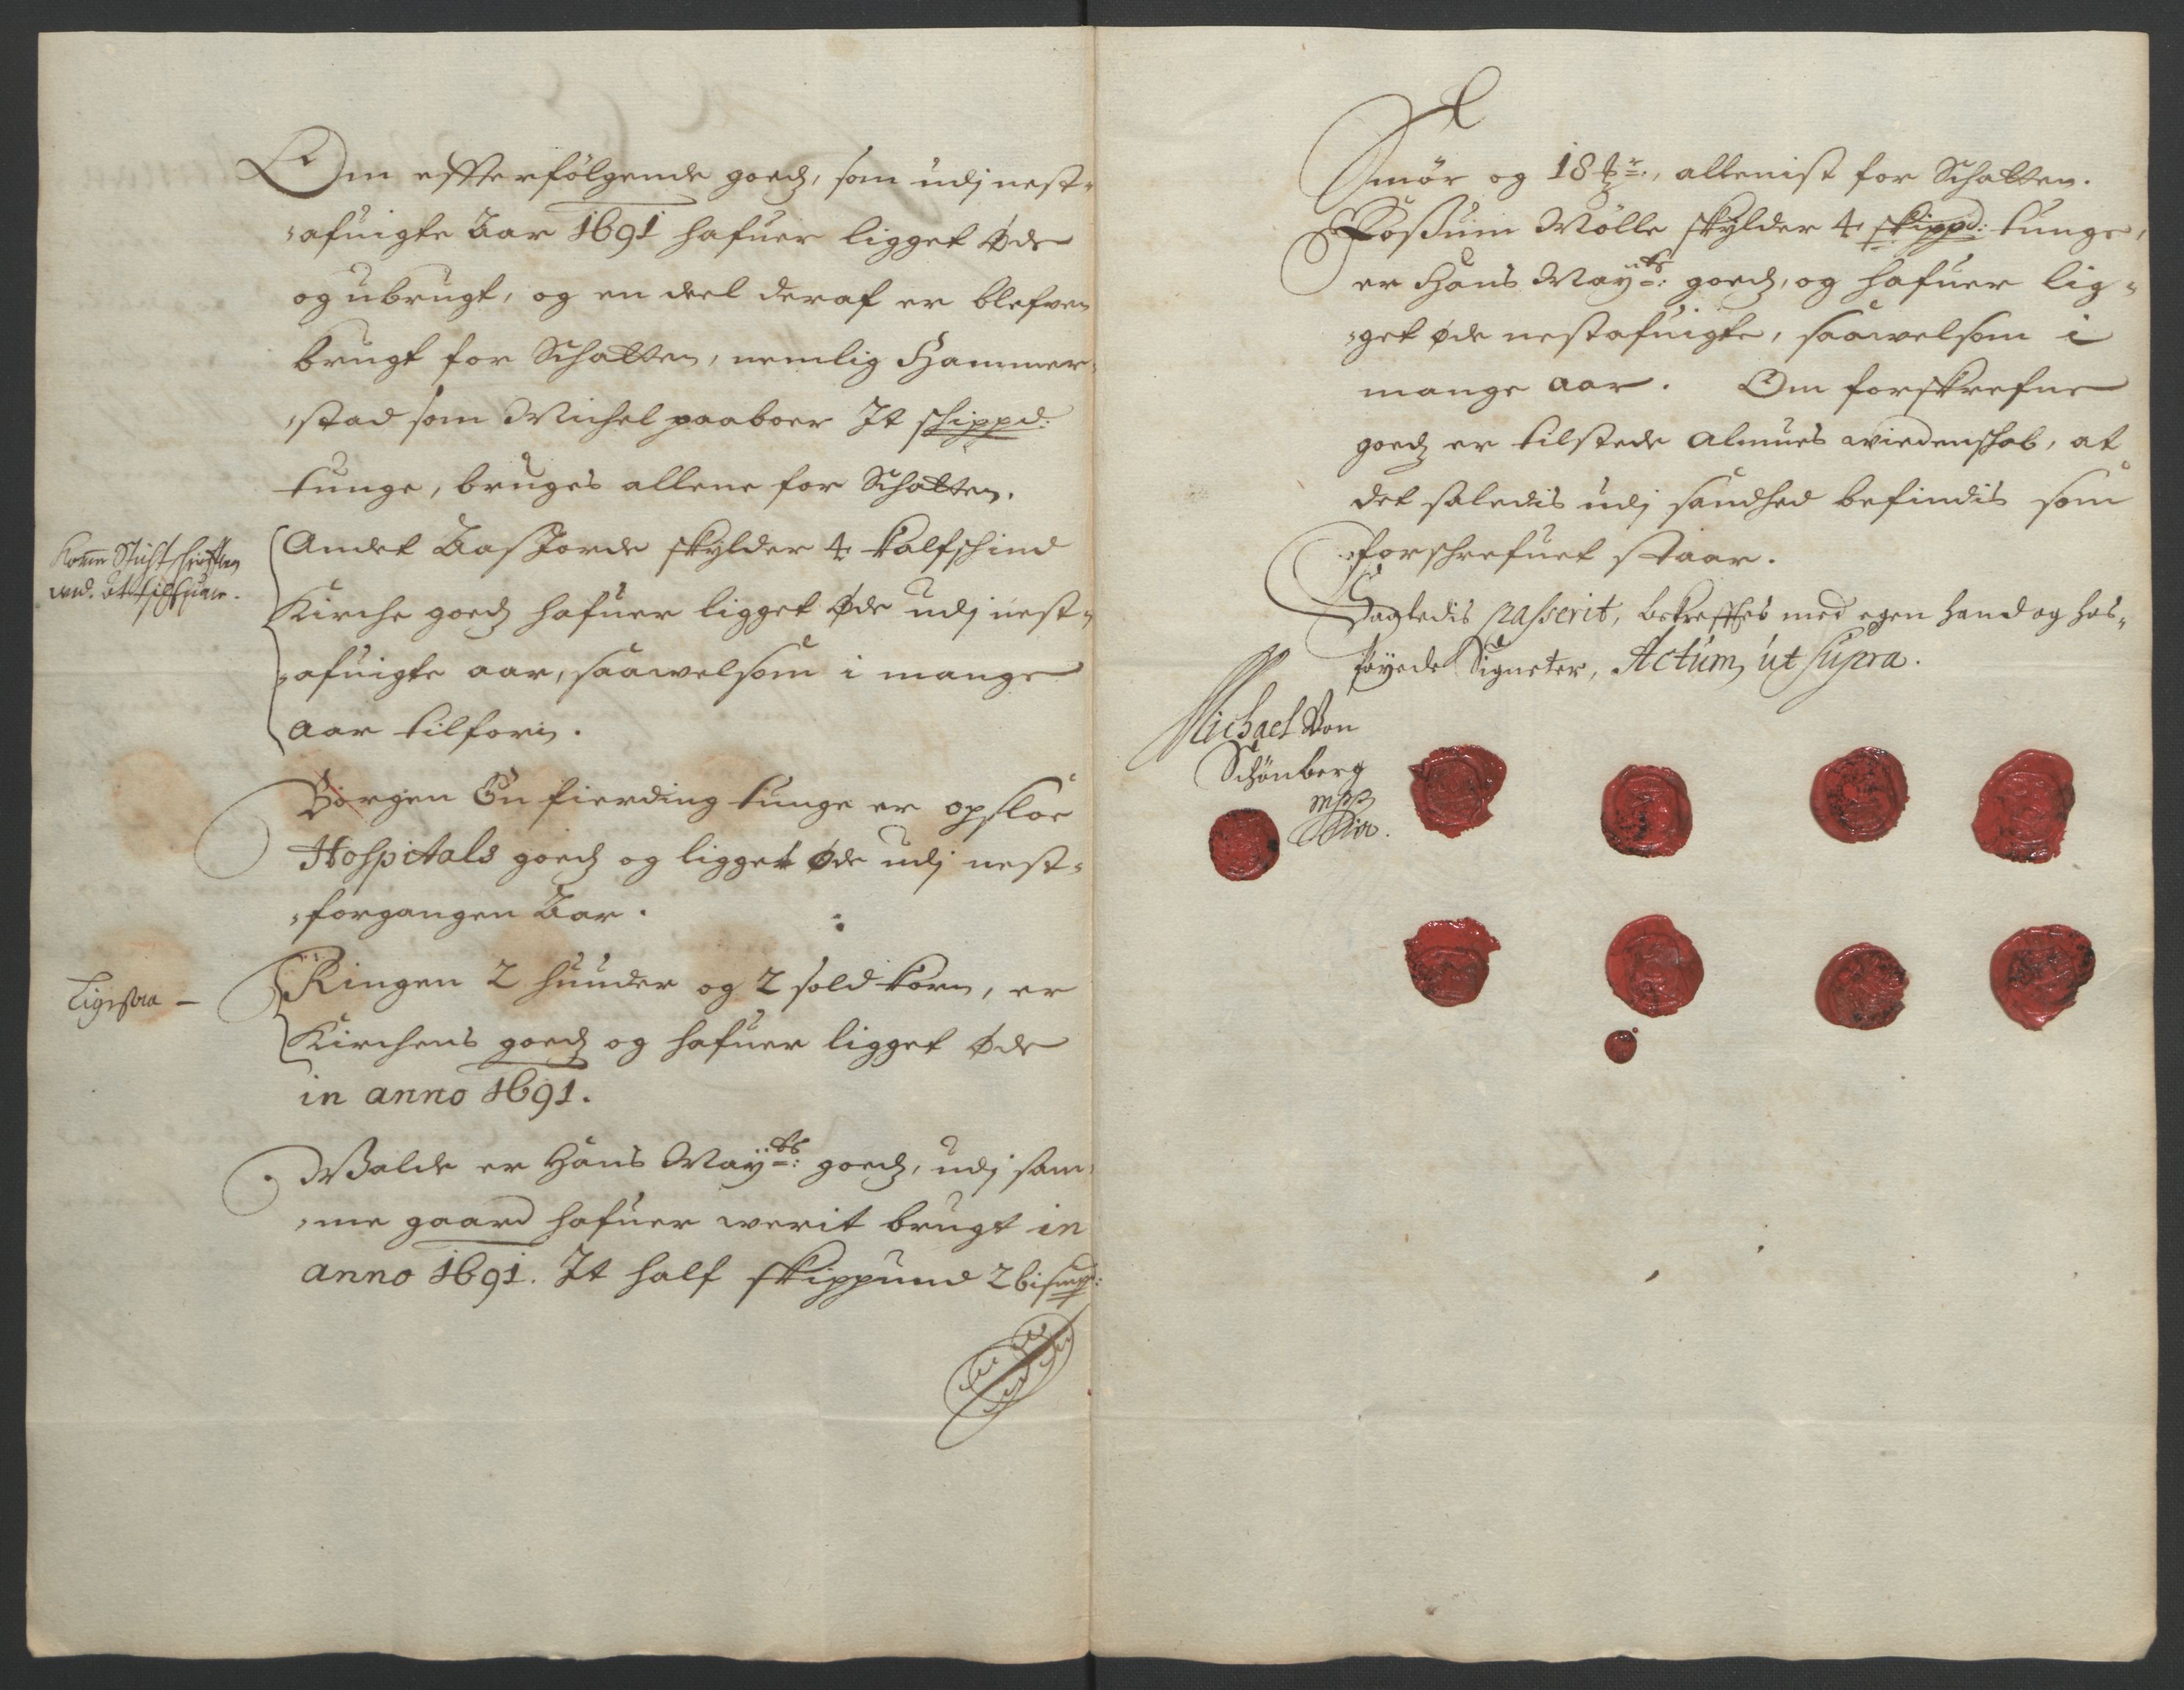 Om effterfölgende goedz, som udj nest-
afuigte Aar 1691 hafuer ligget øde
og ubrugt, og en deel deraf er blefven
brugt for Schatten, nemlig Hammer-
stad som Michel paaboer It schippd:
tunge, bruges allene for Schatten.
Andet Aasjorde skylder 4 Kalfschind
Kirche goedz hafuer ligget øde udj nest-
afuigte aar, saawelsom i mange
aar tilforn.
Borgen En fierding tunge er opsloe
Hospitals goedz og ligget øde udj nest-
forgangen Aar.
Ligesaa -
Ringen 2 huuder og 2 sold korn, er
Kirchens goedz og hafuer ligget øde
in anno 1691.
Walde er Hans Mayts: goedz, udj sam-
me gaard hafuer werit brugt in
anno 1691. It half skippund 2 bismpd:
Smör og 18 , allenist for Schatten.
Fossum Mölle skylder 4 skippd: tunge,
er Hans Mayts: goedz, og hafuer lig-
get øde nestafuigte, saawelsom i
mange aar. Om forskrefne
goedz er tilstede Almues widenskab, at
det saledis udj sandhed befindis som
forschrefuet staar.
Sagledis passerit, bekrefftes med egen haand og hos-
föyede Signeter, Actum ut supra.
Michael Von
Schönberg
mpp